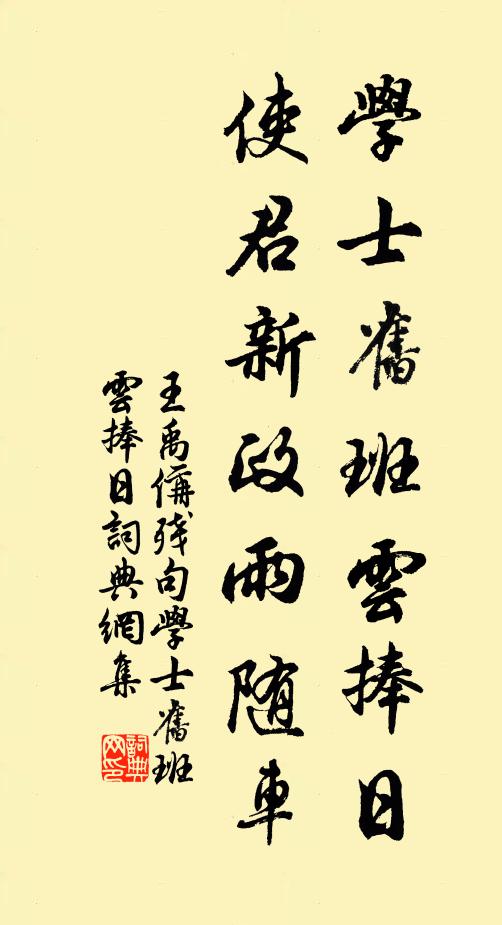 學士舊班雲捧日
使君新政雨随車
王禹偁残句學士舊班
雲捧日詞典網集
詞典
网印